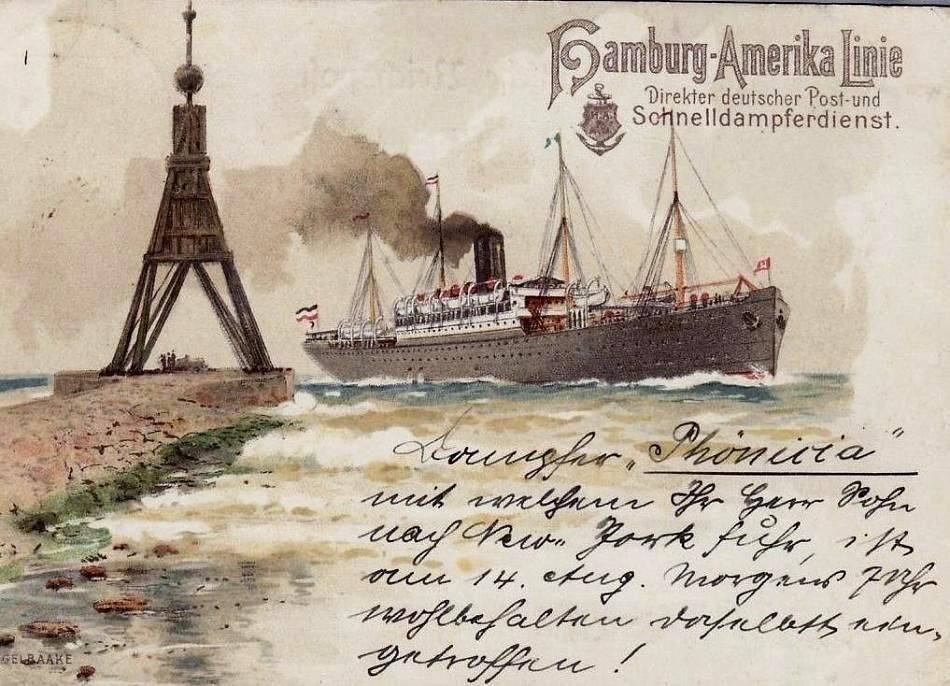 Hamburg-Amerika Linie
Direkter deutscher Post-und
Schnelldampferdienst.
Dampfer „Phönicia"
mit welchem Ihr Herr Sohn
nach New-York fuhr, ist
am 14. Aug. Morgens 7 Uhr
wohlbehalten daselbst ein-
getroffen!
GELBAAKE